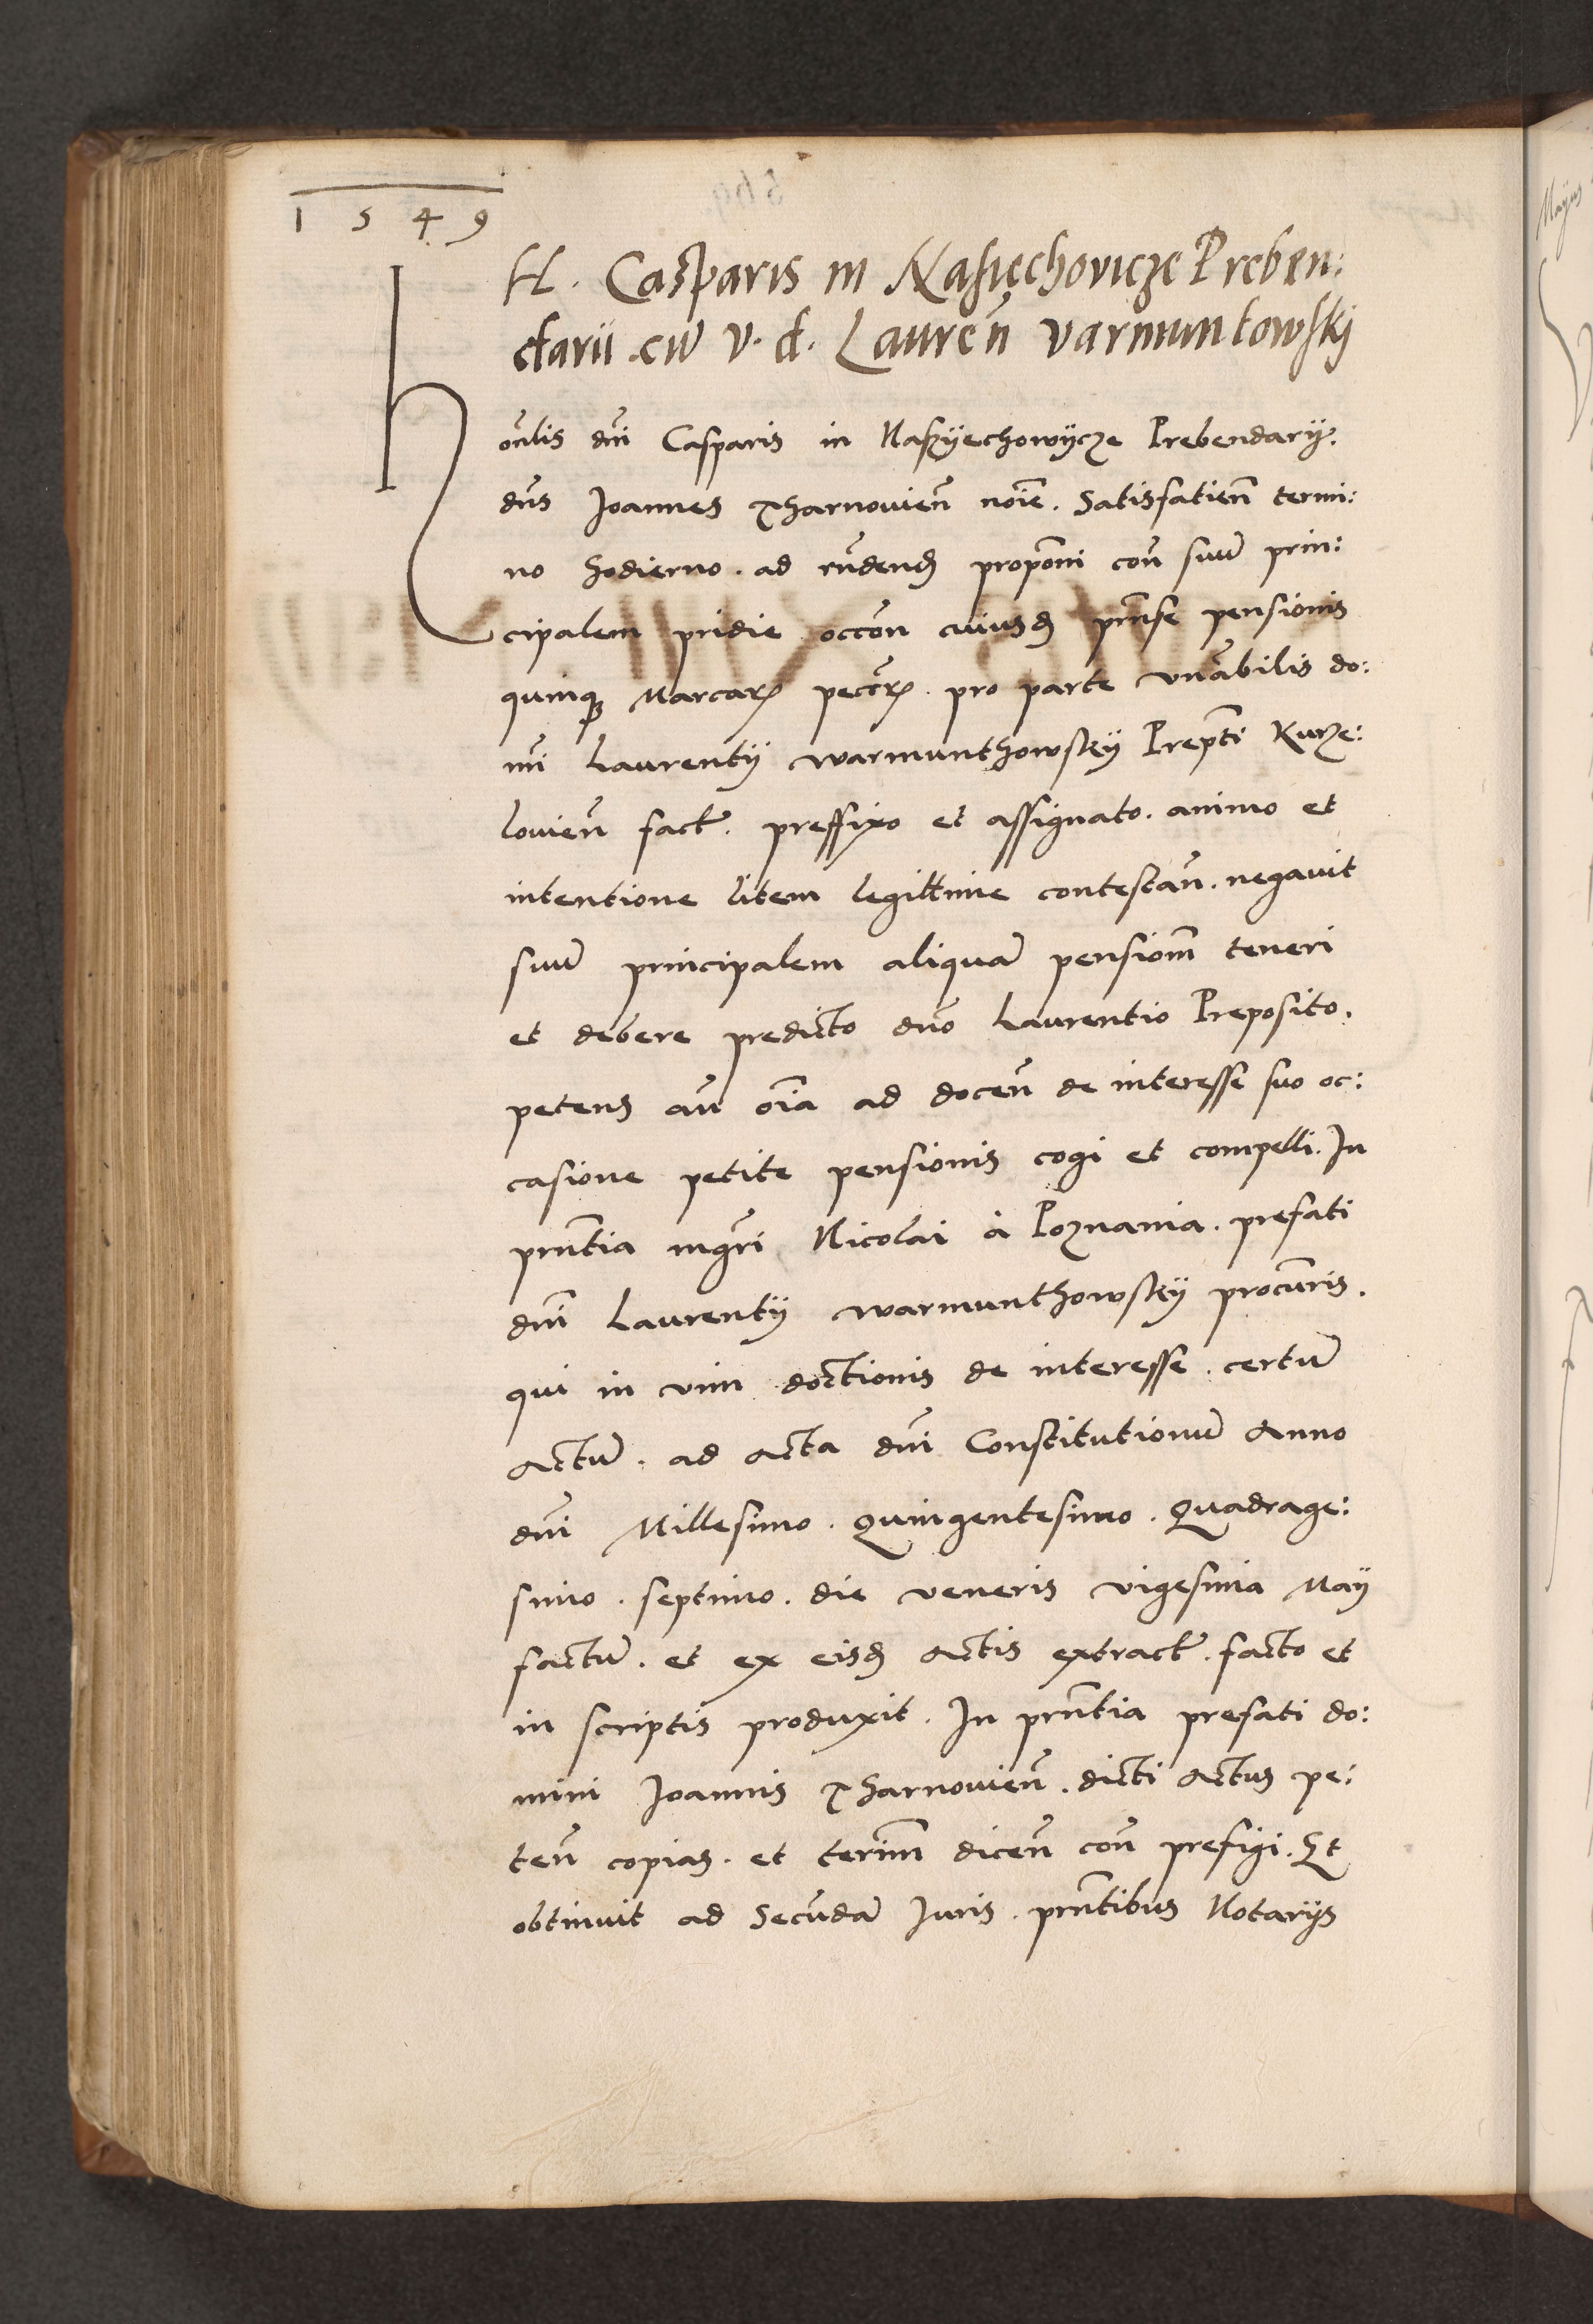 1549
H. Casparis in Nasięchovicze Preben:
darii cū v. d. Laureñ varmuntowskj
Honlis dni Casparis in Naszyechowycze Prebendarij.
dns Joannes Tharnovien noie. Satisfatien termi:
no hodierno. ad rndend proponi con suū prin:
cipalem pridie occon cuiusd prnse pensionis
quinq Marcar peccr. pro parte vnabilis do:
mi Laurentij warmunthowskij Prepti Kurze:
lovien fact. preffixo et assignato. animo et
intentione litem legittime contestan. negavit
suū principalem aliquā pensiom teneri
et debere predicto dno Laurentio Preposito.
petens an oia ad docen de interesse suo oc:
casione petite pensionis cogi et compelli. In
prntia mgri Nicolai à Poznania. prefati
dni Laurentij warmunthowskij procuris.
qui in vim doctionis de interesse. certū
Actū. ad Acta dni Constitutionū Anno
dni Millesimo. Quingentesimo. Quadrage:
simo. septimo. die veneris vigesima Maij
factū. et ex eisd Actis extract. facto et
in scriptis produxit. In prntia prefati do:
mini Joannis Tharnovien. dicti Actus pe:
ten copias. et terim dicen con prefigi. Et
obtinuit ad Secūdā Iuris. prntibus Notarijs